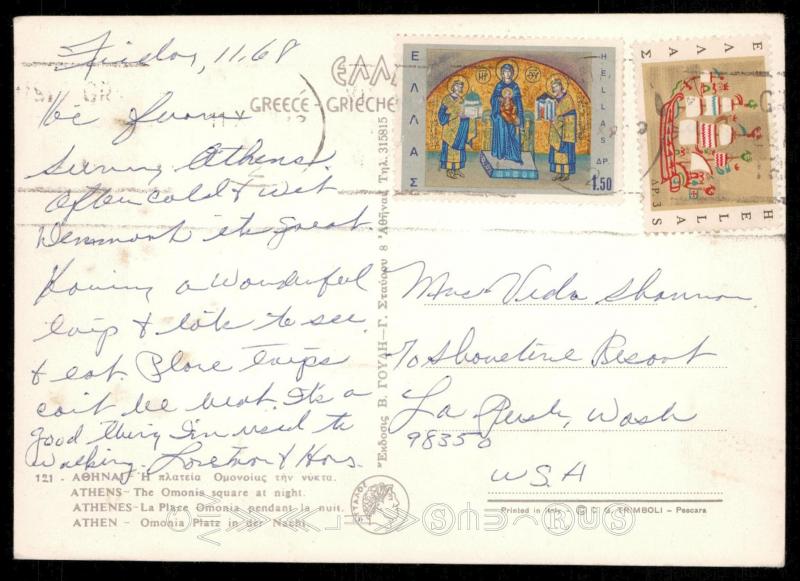 Friday, 11.68
Hi from
Sunny Athens
After cold & wet
Denmark its great.
Having a wonderful
trip & lots to see
& eat. Plane trips
can't be beat. It's a
good thing I'm used to
walking. &
ΕΛΛ
GREECE - GRIECHE
ΕΛΛΑΣ
HELLAS ΔΡ.
1.50
ΕΛΛΑΣ
HELLAS
ΔΡ 3
Mrs Veda Shannon
% Shoreline Resort
La Push, Wash
98350
USA
Ἔκδοσις Β. ΓΟΥΔΗ—Γ. Σταύρου 8 Ἀθῆναι Τηλ. 315815
121 - ΑΘΗΝΑΙ - Ἡ πλατεῖα Ὁμονοίας τὴν νύκτα.
ATHENS - The Omonia square at night.
ATHENES - La Place Omonia pendant la nuit.
ATHEN - Omonia Platz in der Nacht
Printed in Italy © C. G. TRIMBOLI - Pescara